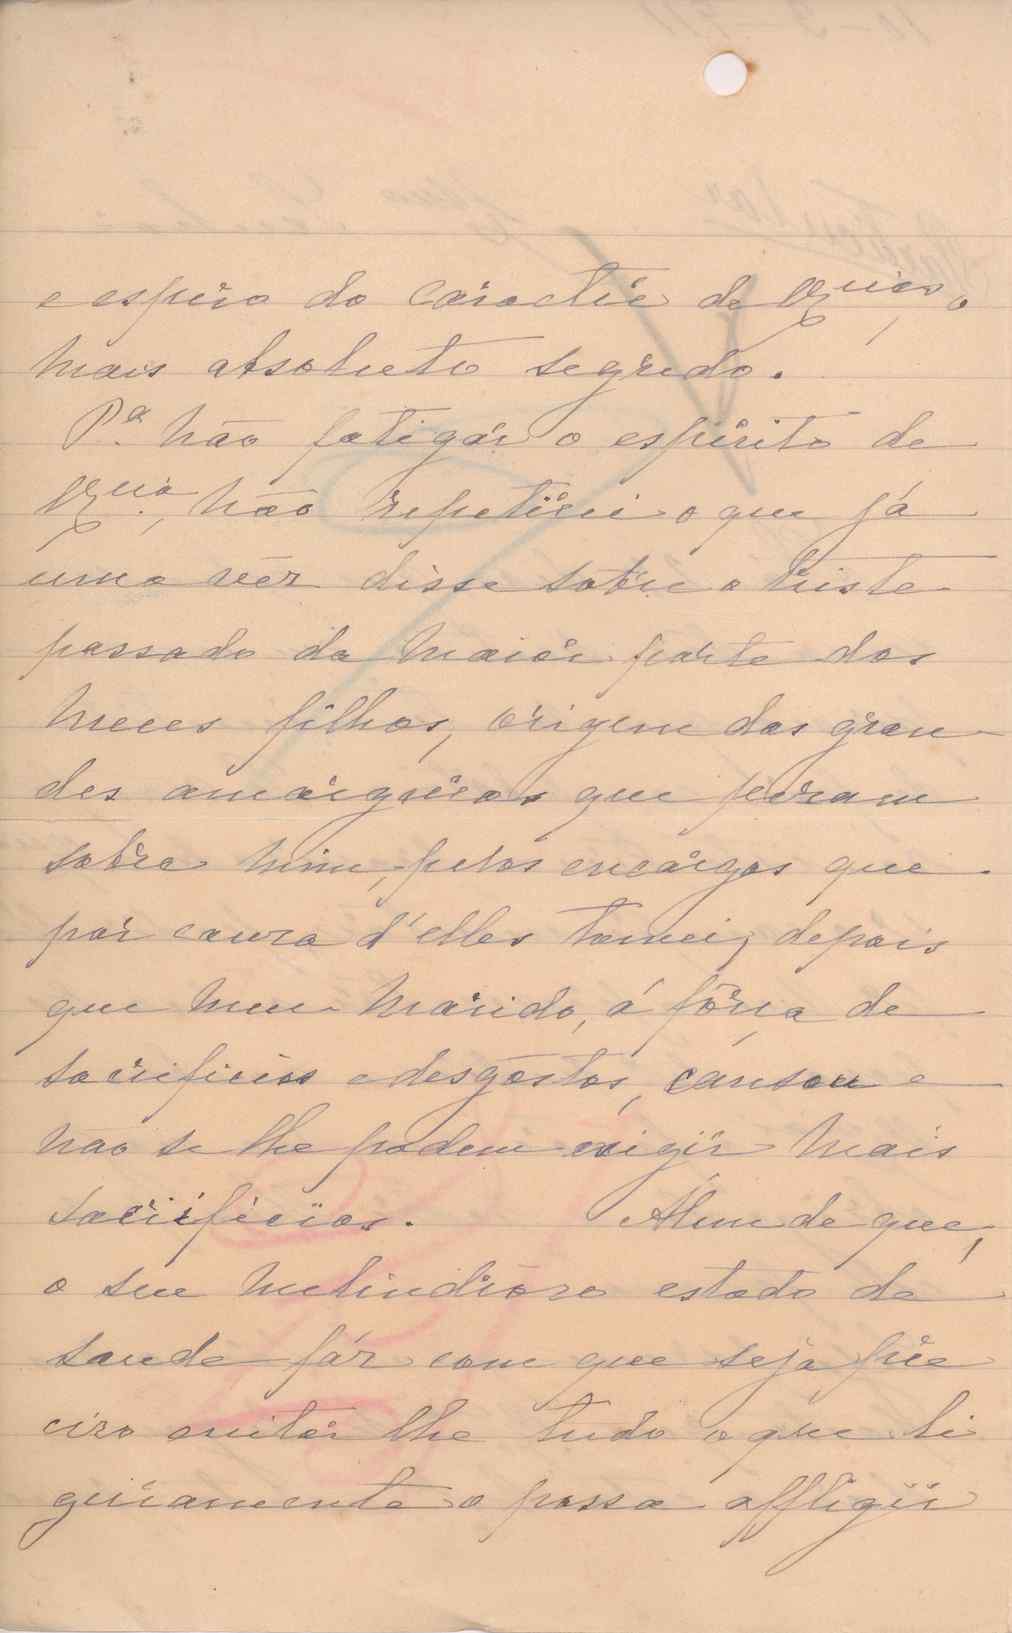 e espero do caracter de V. Ex.cia, o
mais absoluto segredo.
P.a não fatigár o espirito de
V. Ex.cia, não repetirei o que já
uma vez disse sobre o triste
passado da maior parte dos
meus filhos, origem das gran-
des amarguras que pezam
sobre mim, pelos encargos que
por causa d'elles tomei, depois
que meu marido, á fôrça de
sacrificios e desgostos, cansou e
não se lhe podem exigir mais
sacrificios. Alem de que,
o seu melindroso estado de
saude fáz com que seja pre
ciso evitár lhe tudo o que li
geiramente o possa affligir